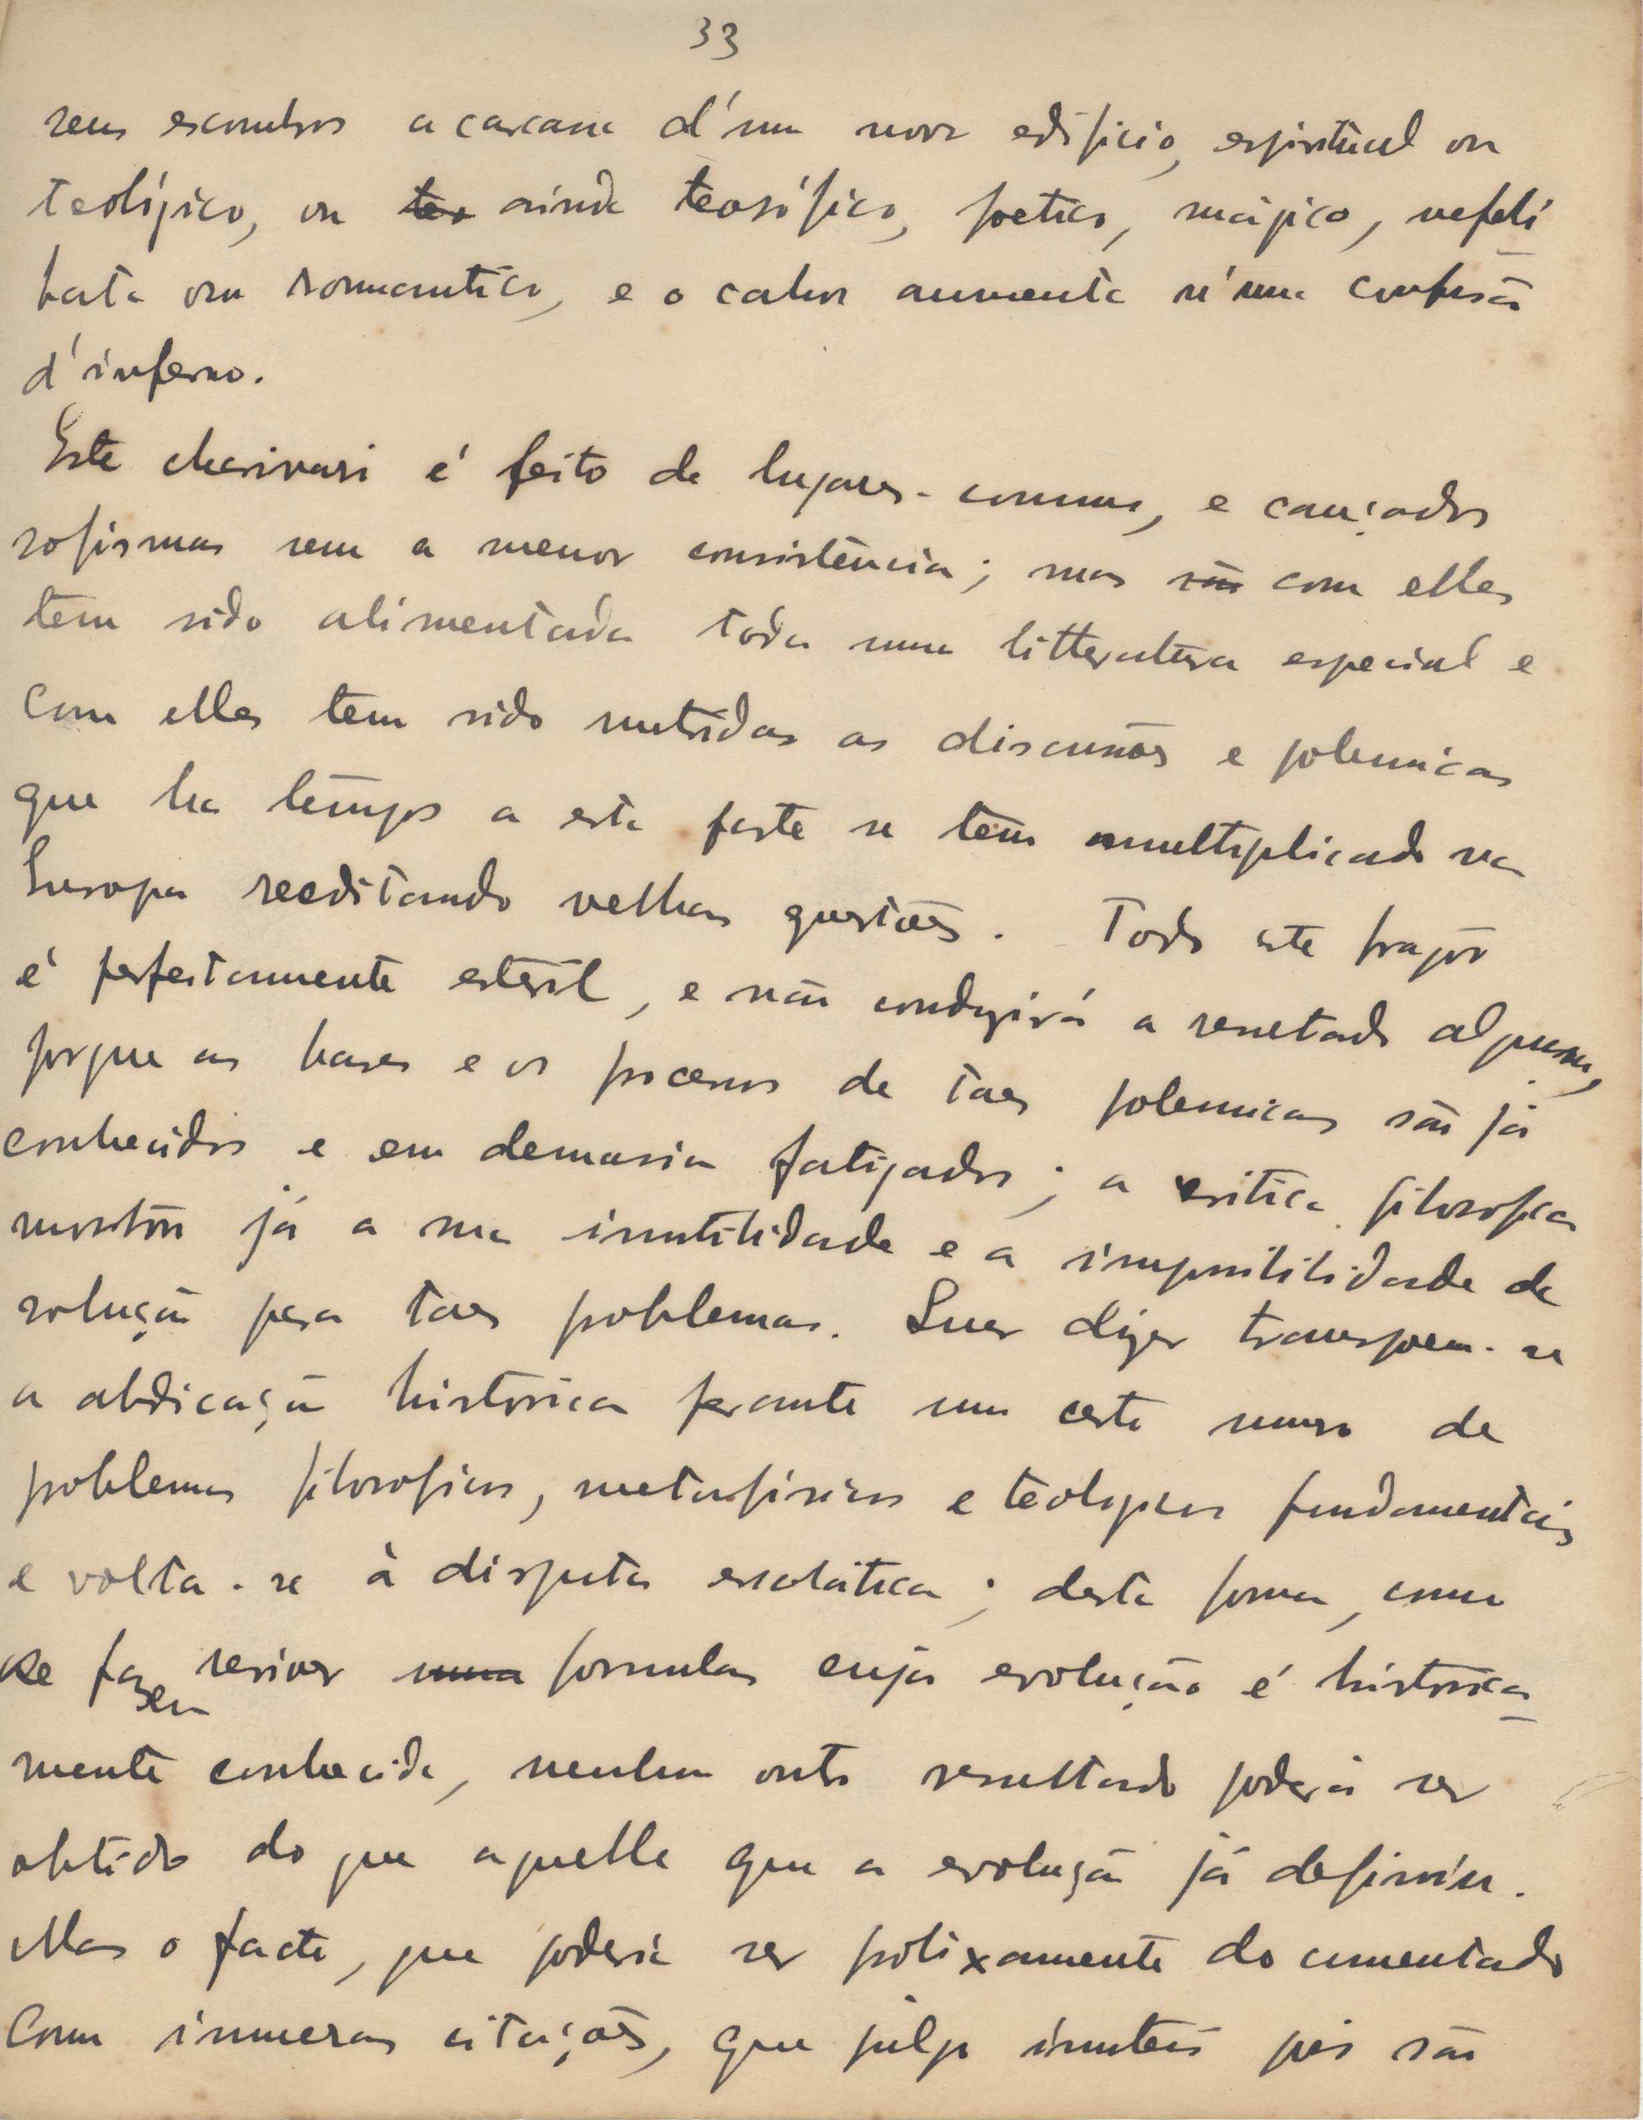 33
seus escombros a carcassa d'um novo edificio, espiritual ou
teológico, ou teo ainda teosófico, poetico, mágico, nefeli
bata ou romantico, e o calor aumenta n'uma confusão
d'inferno.
Este charivari é feito de lugares-comuns, e cançados
sofismas sem a menor consistência; mas são com elles
tem sido alimentada toda uma litteratura especial e
com elles tem sido nutridas as discussões e polemicas
que ha tempos a esta parte se tem multiplicado na
Europa reeditando velhas questões. Todo este fragor
é perfeitamente esteril, e não conduzirá a resultado algum,
porque as bases e os processos de taes polemicas são já
conhecidos e em demasia fatigados; a critica filosofica
mostrou já a sua inutilidade e a impossibilidade de
solução para taes problemas. Quer dizer transpoem-se
a abdicação historica perante um certo numero de
problemas filosoficos, metafisicos e teologicos fundamentais
e volta-se à disputa escolática; desta forma, como
se fazem reviver uma formulas cuja evolução é historica
mente conhecida, nenhum outro resultado poderá ser
obtido do que aquelle que a evolução já definiu.
Mas o facto, que poderia ser prolixamente documentado
com inumeras citações, que julgo inuteis pois são